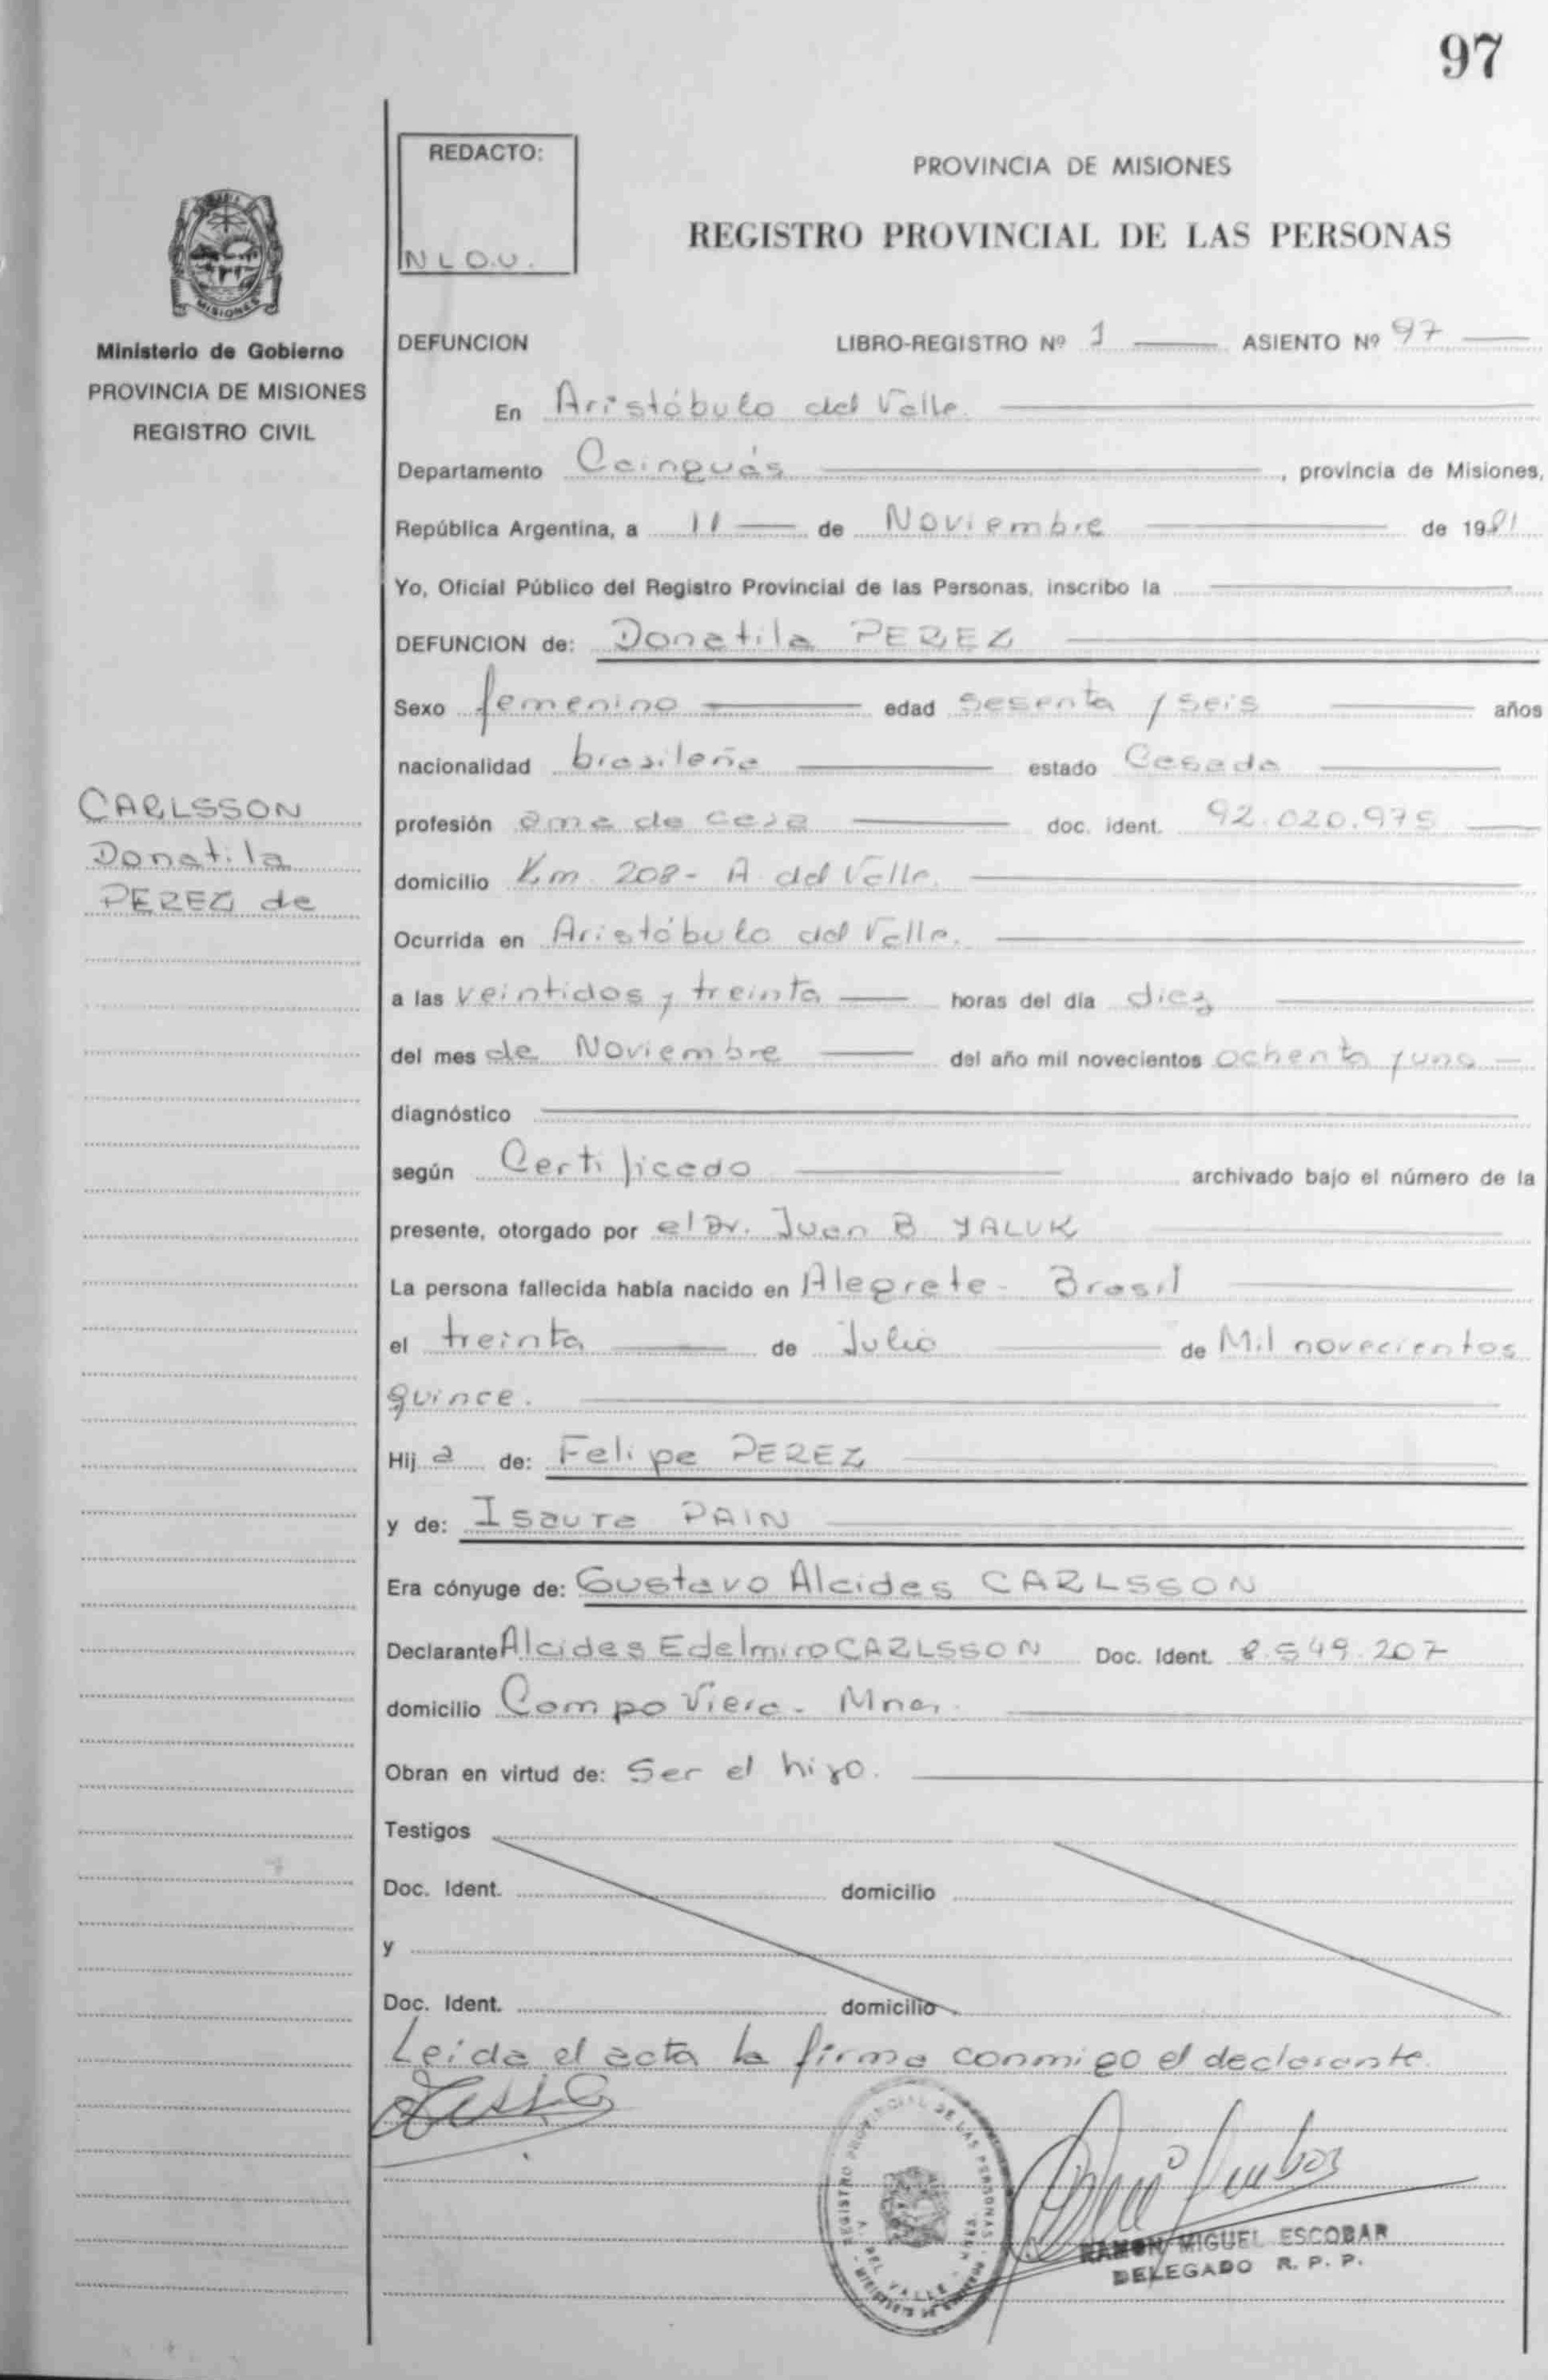 97
REDACTO:
N L O.U.
PROVINCIA DE MISIONES
REGISTRO PROVINCIAL DE LAS PERSONAS
MISIONES
Ministerio de Gobierno
PROVINCIA DE MISIONES
REGISTRO CIVIL
DEFUNCION LIBRO-REGISTRO Nº 1 ASIENTO Nº 97
En Aristóbulo del Valle.
Departamento Cainguás, provincia de Misiones,
República Argentina, a 11 de Noviembre de 1981
Yo, Oficial Público del Registro Provincial de las Personas, inscribo la
DEFUNCION de: Donatila PEREZ
Sexo femenino edad sesenta y seis años
nacionalidad brasileña estado Casada
CARLSSON
Donatila
PEREZ de
profesión ama de casa doc. ident. 92.020.975
domicilio Km. 208- A. del Valle.
Ocurrida en Aristóbulo del Valle.
a las veintidos y treinta horas del día diez
del mes de Noviembre del año mil novecientos ochenta y uno
diagnóstico
según Certificado archivado bajo el número de la
presente, otorgado por el Dr. Juan B. YALUK
La persona fallecida había nacido en Alegrete - Brasil
el treinta de Julio de Mil novecientos
quince.
Hij a de: Felipe PEREZ
y de: Isaura PAIN
Era cónyuge de: Gustavo Alcides CARLSSON
Declarante Alcides Edelmiro CARLSSON Doc. Ident. 8.549.207
domicilio Campo Viera - Mnes.
Obran en virtud de: Ser el hijo.
Testigos
Doc. Ident. domicilio
y
Doc. Ident. domicilio
Leida el acta la firma conmigo el declarante.
REGISTRO PROVINCIAL DE LAS PERSONAS
A. DEL VALLE
RAMON MIGUEL ESCOBAR
DELEGADO R. P. P.